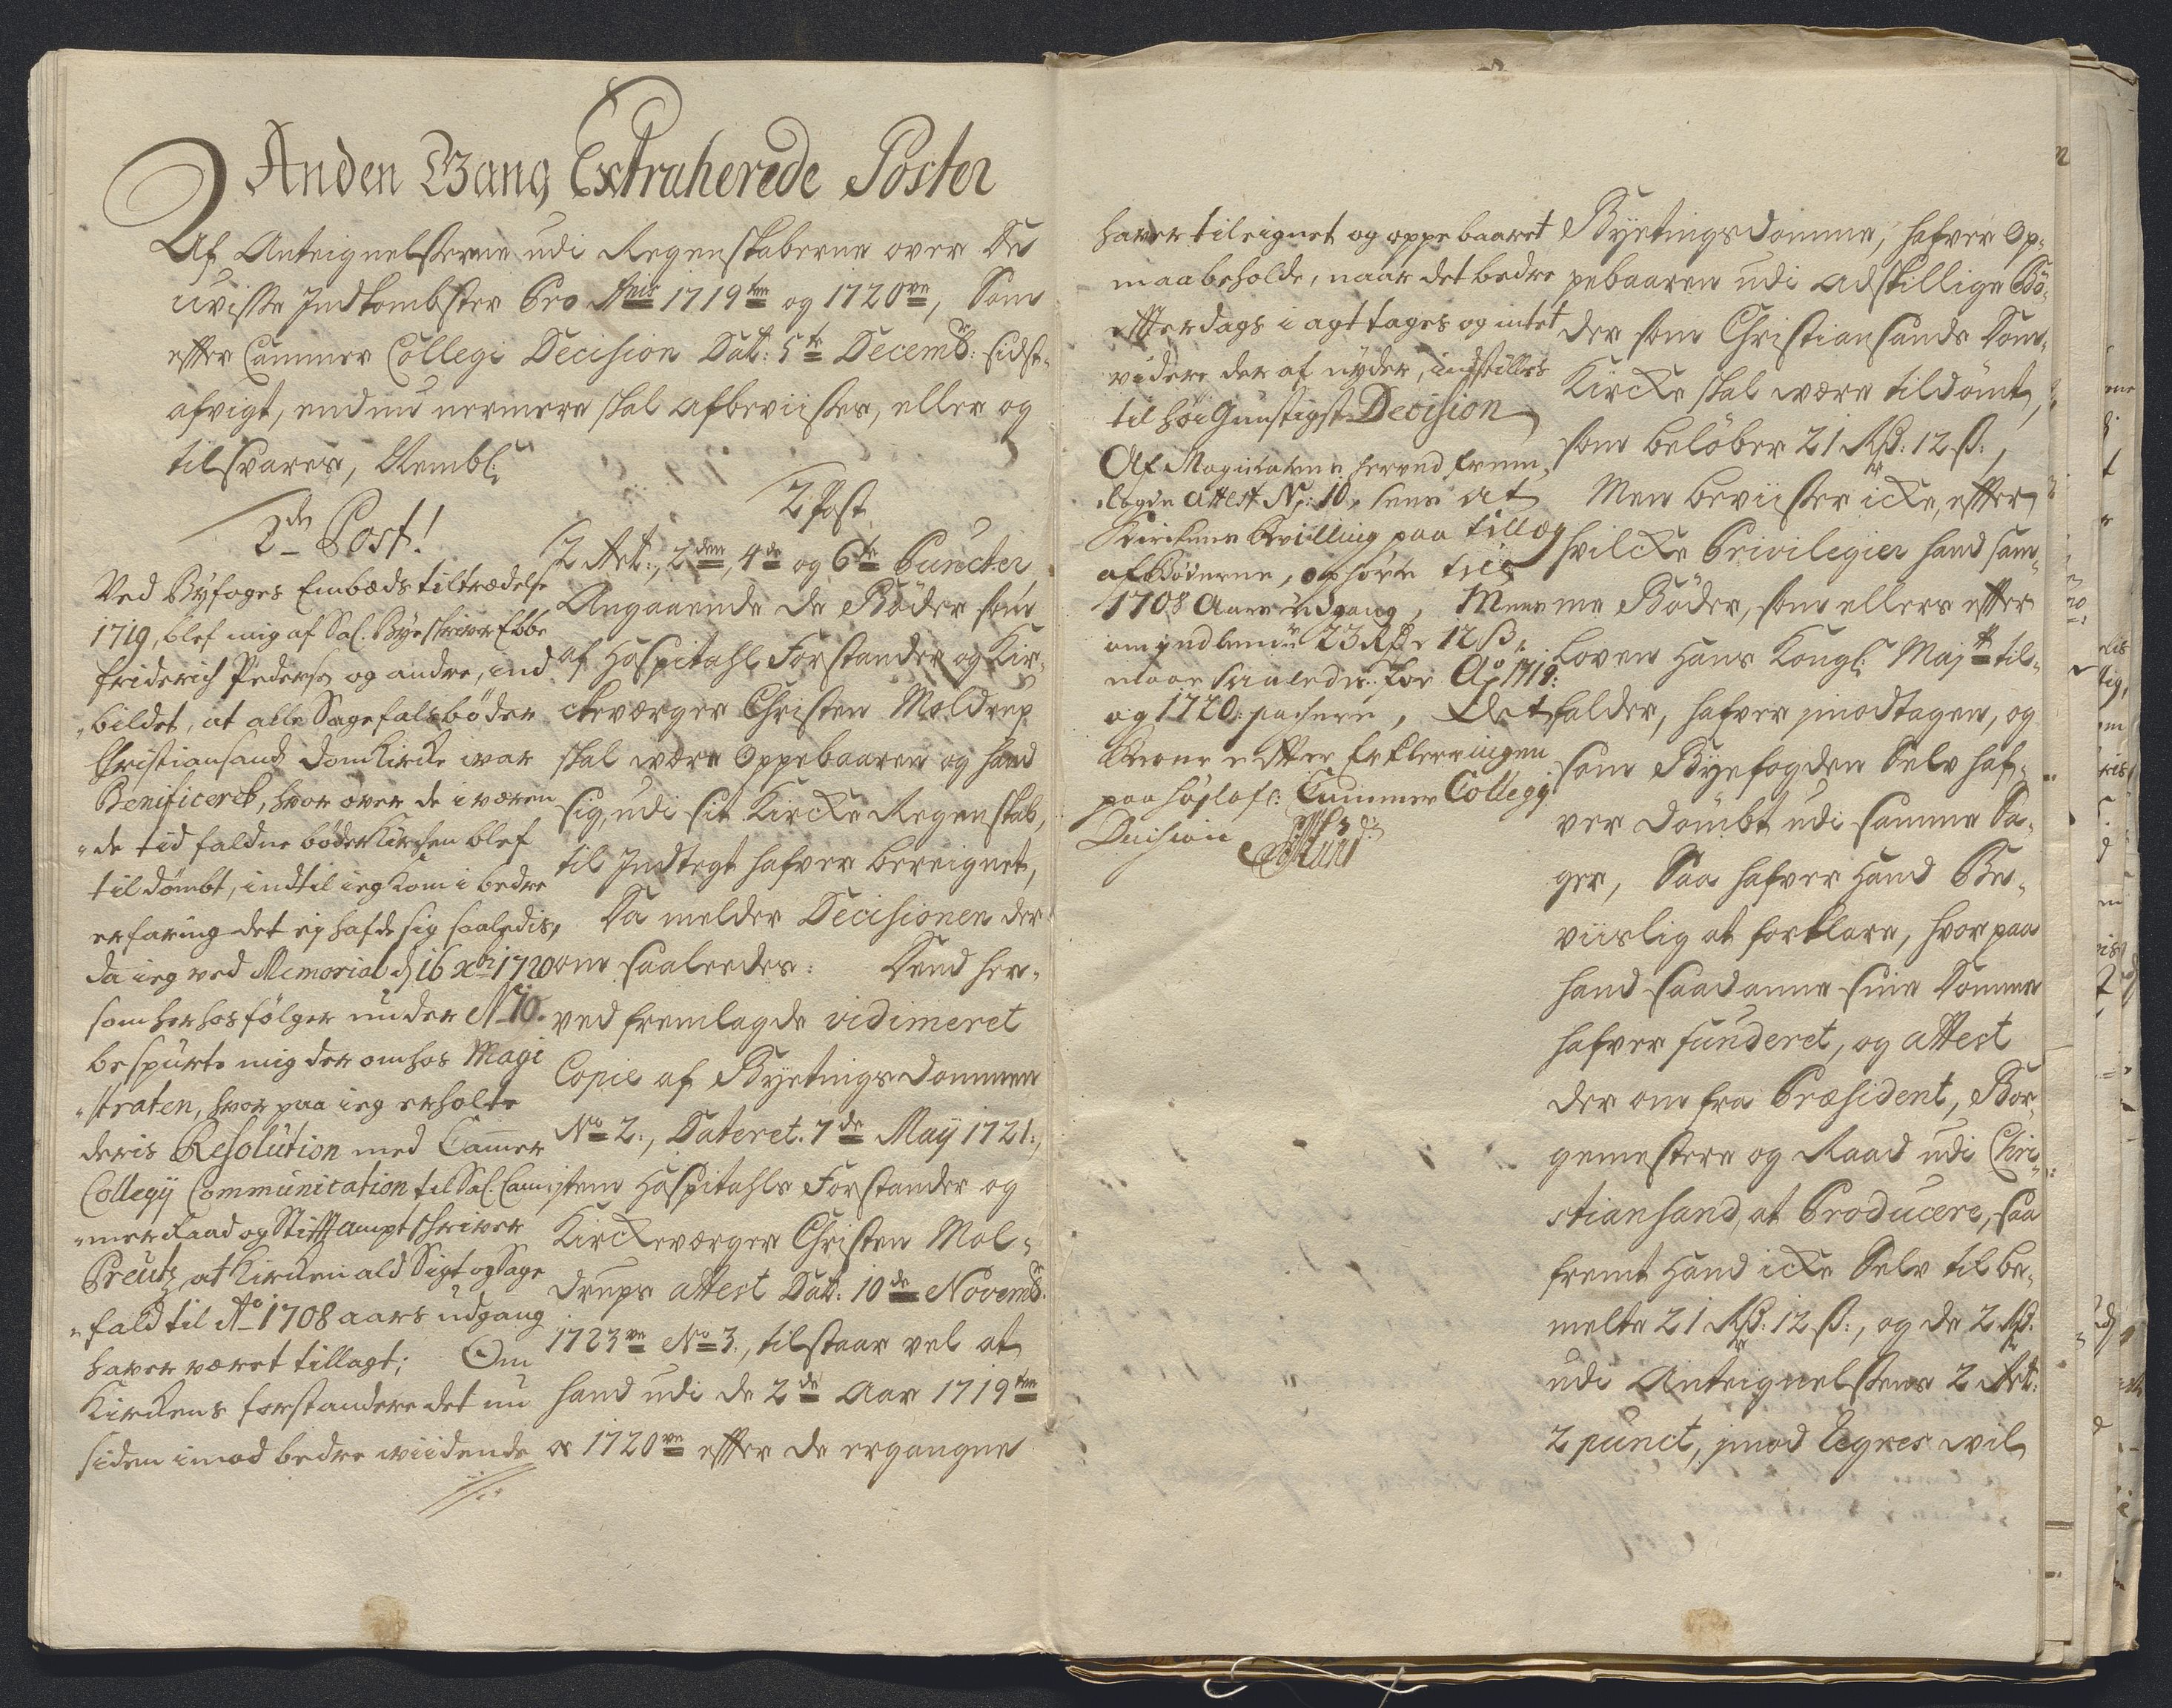 Anden Gang Extraherede Poster
Af Anteignelserne udi Regenskaberne over De
uvisse Indkombster Pro Anis 1719ten og 1720ve, Som
effter Cammer Collegi Decision Dat: 5te Decembr: sidst-
afvigt, end nu nermere skal afbeviises, eller og
tilsvares, Nembl:
2den Post!
Ved Byfoges Embeds tiltrædelse
1719, blef mig af Sal. Byeskriver Ebbe
Friderich Pedersen og andre, ind
„bildet, at alle Sagefalsbøder
Christiansand Domkirke war
Benificeret, hvor over de i væren
„de tid faldne bøder Kirken blef
til dømbt, indtil ieg kom i bedre
erfaring det ej hafde sig saaledis,
da ieg ved Memorial dj 16 xbr 1720
som her hos følger under No 10.
bespurte mig der om hos Magi
„straten, hvor paa ieg erholte
deris Resolution med Camer
Collegij Communication til Sal. Cam
„mer Raad og Stiftamptskriver
Preutz, at Kirken ald Sigt og Sage
„fald til Ao 1708 aars udgang
haver været tillagt; Om
Kirkens forstandere det nu
siden imod bedre wiidende
2 Post
2 Art:, 2den, 4de og 6te Puncter
Angaaende de Bøder som
af Hospitahl Forstander og Kir-
ckeværger Christen Moldrup
skal være Oppebaaren og hand
sig, udi sit Kircke Regenskab,
til Indtegt hafver bereignet,
Da melder Decisionen der
om saaleedes: Dend her-
ved fremlagde vidimeret
Copie af Byetings Dommen
No 2:, Dateret. 7de Maij 1721:,
item Hospitahls Forstander og
Kirckeværger Christen Mol-
drups attest Dat: 10de Novembr.
1723ve No 3:, tilstaar vel at
hand udi de 2de Aar 1719ten
og 1720ve effter de ergangne
haver tileignet og oppebaaret
maa beholde, naar det bedre
effterdags i agt tages og intet
videre der af nyder, indstilles
til høi Gunstigst Decision
Af Magistratens herved frem-
lagde attest No: 10. sees at
Kirkens Bevilling paa tillæg
af Bøderne, ophørte ved
1708 Aars udgang, Mens
om indkomne 23 Rdr 12 s,
maae saaledes for Ao 1719:
og 1720: passere,
Beroer effter Erklerringen
paa høylofl: Cammer Collegij
Decision
Byetings Domme, hafver Op-
pebaaren udi adskillige Bø-
der som Christiansands Dom-
Kircke skal være tildømt,
som beløber 21 Rdr: 12 s:,
Men beviiser icke, effter
hvilcke Privilegier hand sam-
me Bøder, som ellers effter
Loven Hans Kongl: Majts til-
falder, hafver imodtagen, og
som Byefogden Selv haf-
ver dømbt udi samme Sa-
ger, Saa hafver Hand Be-
viislig at forklare, hvor paa
hand saadanne sine Domme
hafver funderet, og attest
der om fra Præsident, Bor-
gemestere og Raad udi Chri-
stiansand, at Producere, saa
fremt Hand icke Selv til be-
melte 21 Rdr: 12 s:, og de 2 Rdr:
udi Anteignelsens 2 Art:
2 punct, imod Regres vil